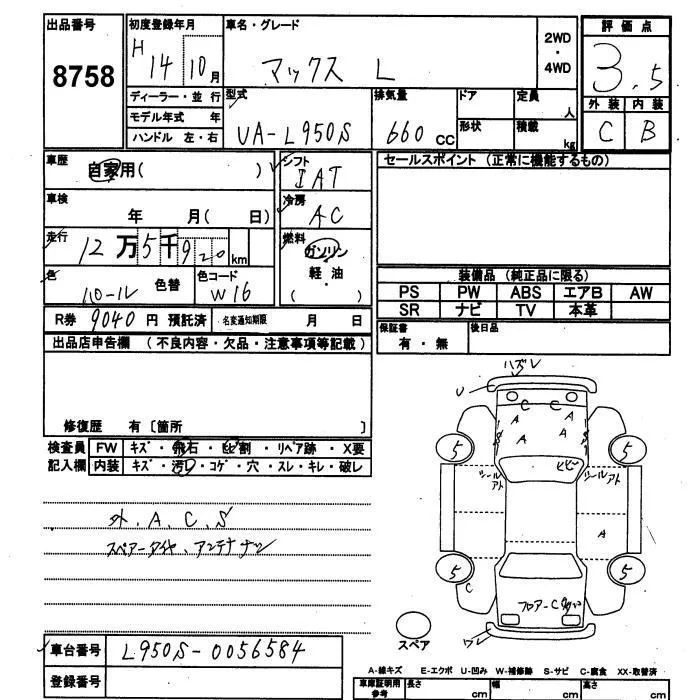 出品番号 初度登録年月 車名・グレード 評価点
8758 H 14 10月 マックス L 2WD・4WD 3.5
ディーラー・並行 型式 排気量 ドア 定員 人 外装 内装
モデル年式 年 UA-L950S 660CC 形状 積載 kg C B
ハンドル 左・右
車歴 自家用( ) シフト IAT セールスポイント (正常に機能するもの)
車検 年 月( 日) 冷房 AC
走行 12万5千920km 燃料 ガソリン
軽油
( )
色 色替 色コード W16
装備品 (純正品に限る)
PS PW ABS エアB AW
SR ナビ TV 本革
R券 9040円 預託済 名変通知期限 月 日 保証書 有・無 後日品
出品店申告欄 (不良内容・欠品・注意事項等記載)
修復歴 有〔箇所 〕
検査員 FW キズ・飛石・ヒビ割・リペア跡・X要
記入欄 内装 キズ・汚レ・コゲ・穴・スレ・キレ・破レ
外.A.C.S
スペアータイヤ、アンテナナシ
ハズレ
U C C
A A
S A A S
5 ヒビ 5
シールアト シールアト
A
5 5
C フロアーC
ワレ
スペア
車台番号 L950S-0056584
登録番号
A-線キズ E-エクボ U-凹み W-補修跡 S-サビ C-腐食 XX-取替済
車庫証明用参考 長さ cm 幅 cm 高さ cm